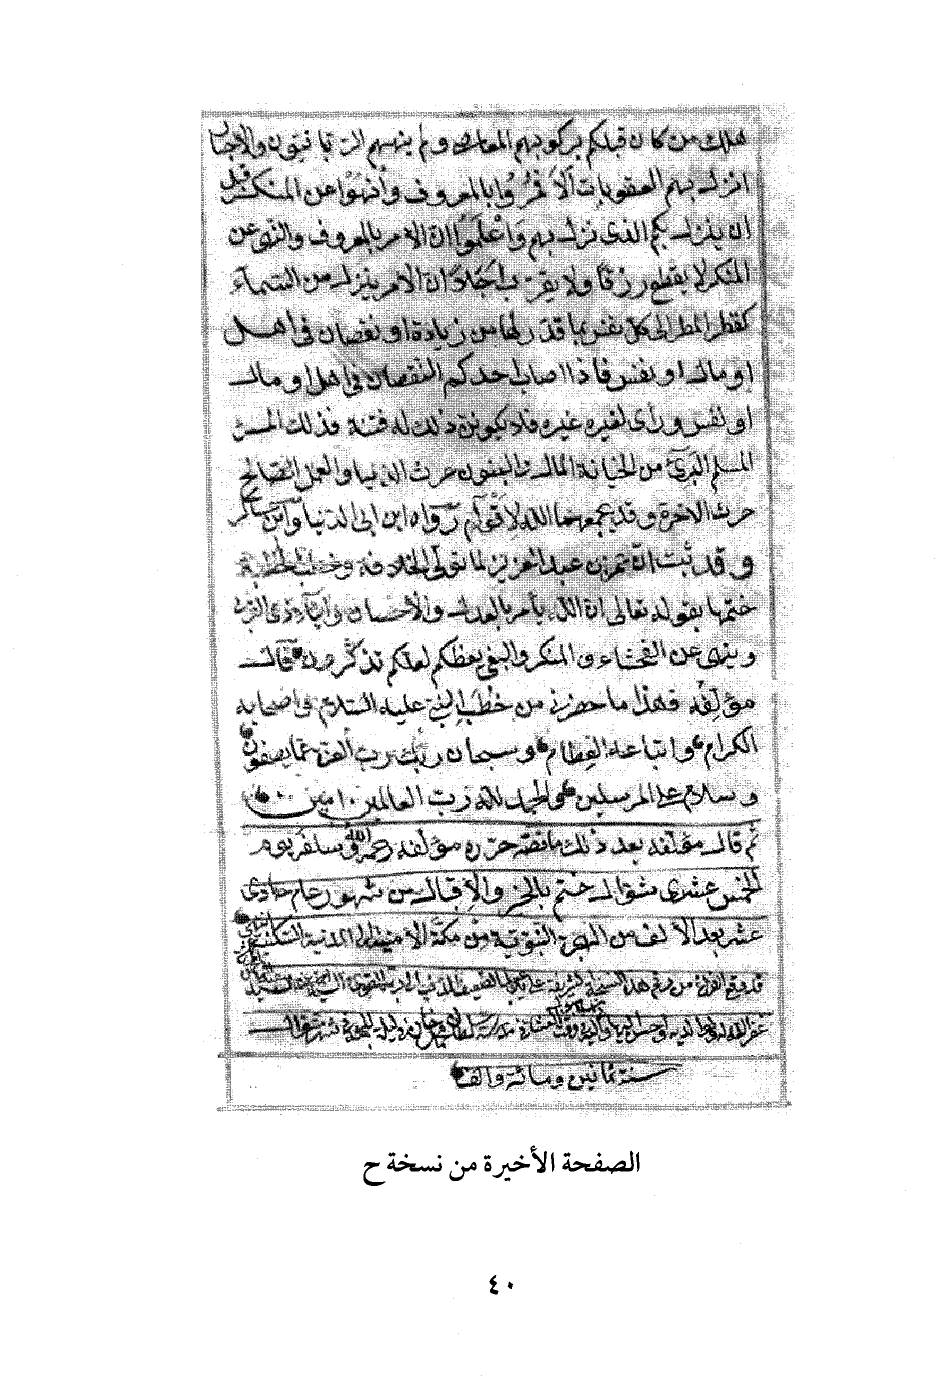 هلك من كان قبلكم بركوبهم المعاصي ولم ينههم الربانيون والأحبار
انزل بهم العقوبات ألا فمُرُوا بالمعروف وانهَوْا عن المنكر قبل
ان ينزل بكم الذي نزل بهم وَاعْلَمُوا ان الامر بالمعروف والنهي عن
المنكر لا يقطع رزقا ولا يقرب اجلا ان الامر ينزل من السماء
كقطر المطر الى كل نفس بما قدّر لها من زيادة او نقصان في اهل
او مال او نفس فاذا اصاب احدكم النقصان في اهل او مال
او نفس ورأى لغيره غيره فلا يكونن ذلك له فتنة فذلك المرء
المسلم البريّ من الخيانة المال والبنون حرث الدنيا والعمل الصالح
حرث الآخرة وقد يجمعهما الله لاقوام رواه ابن ابي الدنيا وابن عساكر
وقد ثبت ان عمر بن عبد العزيز لما تولى الخلافة وخطب الخطبة
ختمها بقوله تعالى ان الله يأمر بالعدل والاحسان وايتآء ذي القربى
وينهى عن الفحشاء والمنكر والبغي يعظكم لعلكم تذكّرون قال
مؤلفه فهذا ما حضرني من خطب النبي عليه السلام في اصحابه
الكرام واتباعه الفخام وسبحان ربك رب العزة عما يصفون
وسلام على المرسلين والحمد لله رب العالمين امين
ثم قال مؤلفه بعد ذلك ما نصّه حرّره مؤلفه رحمه الله في سلخ يوم
الخمس عشري شوال ختم بالخير والاقبال من شهور عام حادي
عشر بعد الالف من الهجرة النبوية من مكة الامينة الى المدنية السكينة
قد وقع الفراغ من رقم هذه النسخة الشريفة على يد
غفر الله له ولوالديه
سنة ثمانين ومائة والف
الصفحة الأخيرة من نسخة ح
٤٠